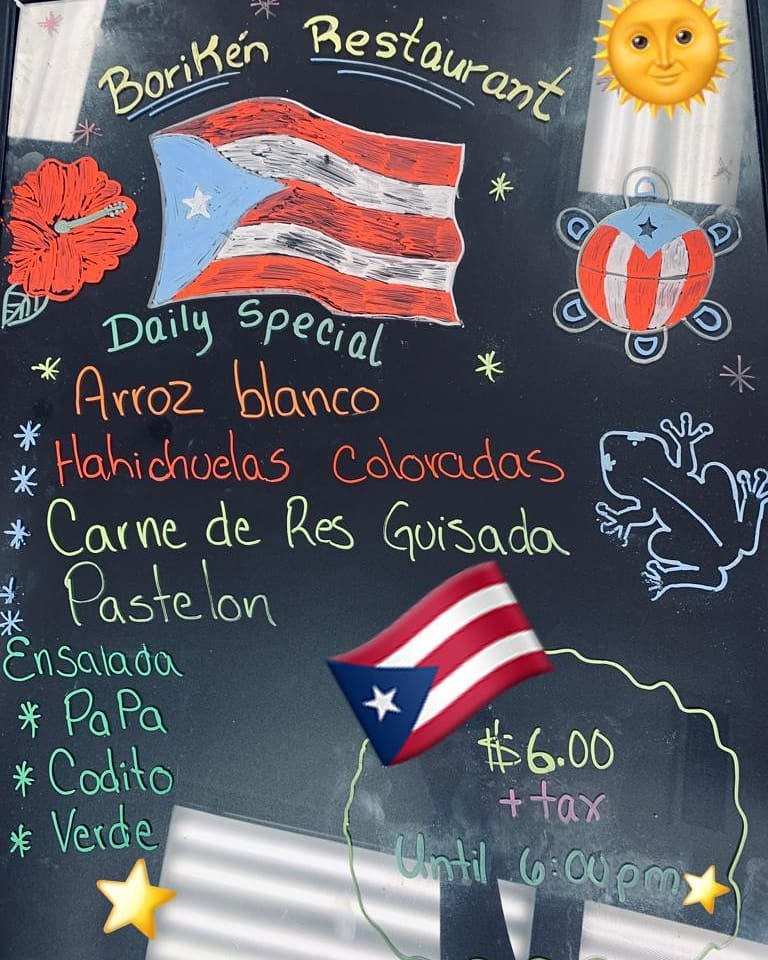 Borikén Restaurant
Daily Special
Arroz blanco
Hahichuelas Coloradas
Carne de Res Guisada
Pastelon
Ensalada
* PaPa
* Codito
* Verde
$6.00
+ tax
Until 6:00pm